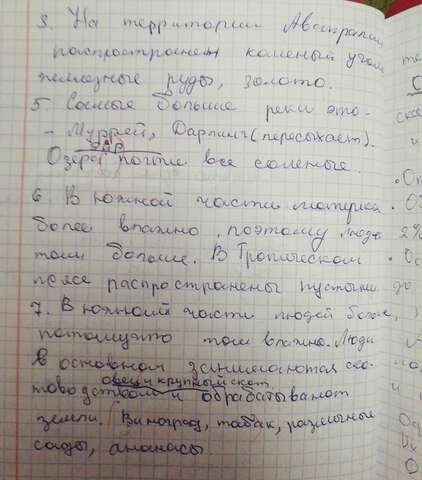 3. На территории Австралии
распространен каменый уголь
железные руды, золото.
5. Самые большие реки это-
- Муррей, Дарлинг (пересыхает).
Эйр
Озера почти все соленые.
6. В южной части материка
более влажно, поэтому людей
там больше. В Тропическом
поясе распространены пустыни
7. В южной части людей более,
потомучто там влажно. Люди
в основном занимаются ско-
овец и крупный скот.
товодством и обрабатывают
земли. Виноград, табак, различные
сады, ананасы.